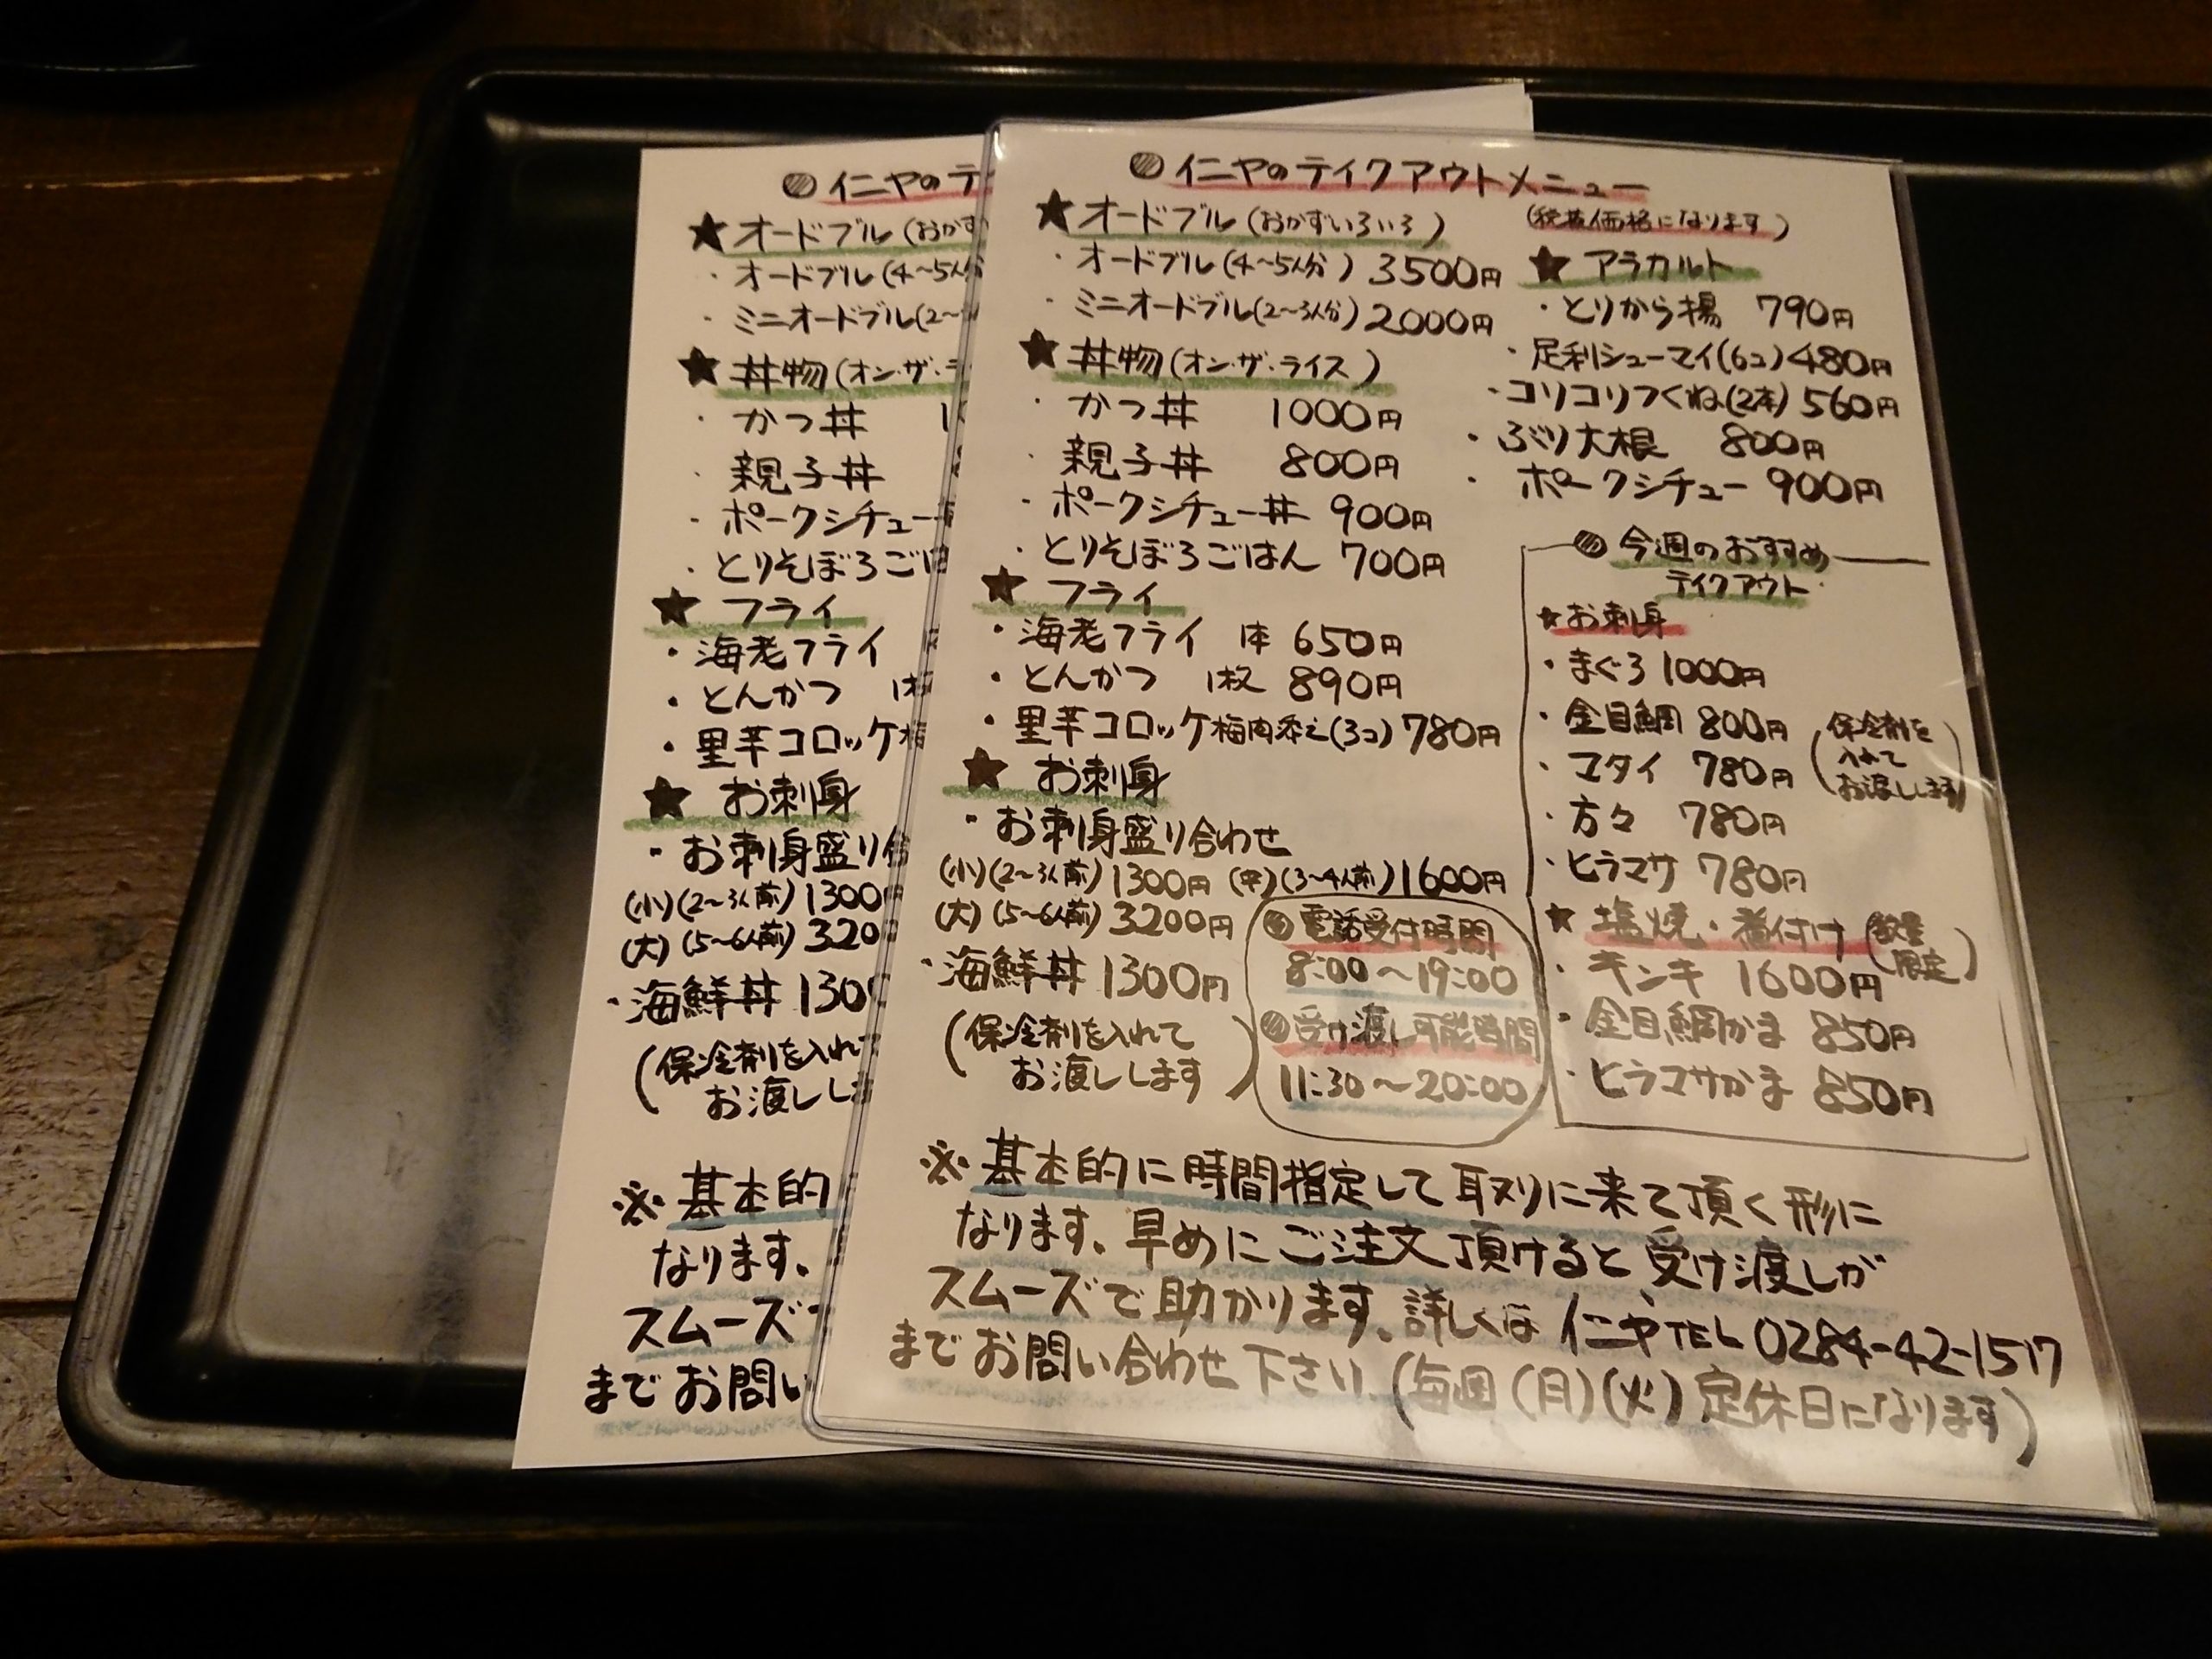 仁ヤのテ
★オードブル(おかず
・オードブル(4~5人分
・ミニオードブル(2~
★丼物(オン・ザ・ラ
・かつ丼
・親子丼
・ポークシチュー
・とりそぼろごは
★フライ
・海老フライ
・とんかつ 1枚
・里芋コロッケ梅
★お刺身
・お刺身盛り合
(小)(2~3人前)1300円
(大)(5~6人前)320
・海鮮丼 130
(保冷剤を入れて
お渡ししま
※基本的
なります。
スムーズで
までお問い
仁ヤのテイクアウトメニュー
(税抜価格になります)
★オードブル(おかずいろいろ)
・オードブル(4~5人分)3500円
・ミニオードブル(2~3人分)2000円
★丼物(オン・ザ・ライス)
・かつ丼 1000円
・親子丼 800円
・ポークシチュー丼 900円
・とりそぼろごはん 700円
★フライ
・海老フライ 1本 650円
・とんかつ 1枚 890円
・里芋コロッケ梅肉添え(3コ)780円
★お刺身
・お刺身盛り合わせ
(小)(2~3人前)1300円 (中)(3~4人前)1600円
(大)(5~6人前)3200円
・海鮮丼 1300円
(保冷剤を入れて
お渡しします)
電話受付時間
8:00~19:00
受け渡し可能時間
11:30~20:00
★アラカルト
・とりから揚 790円
・足利シューマイ(6コ)480円
・コリコリつくね(2本)560円
・ぶり大根 800円
・ポークシチュー 900円
今週のおすすめ
テイクアウト
★お刺身
・まぐろ 1000円
・金目鯛 800円
・マダイ 780円
・方々 780円
・ヒラマサ 780円
(保冷剤を
入れて
お渡しします)
★塩焼・煮付け(数量
限定)
・キンキ 1600円
・金目鯛かま 850円
・ヒラマサかま 850円
※基本的に時間指定して取りに来て頂く形に
なります。早めにご注文頂けると受け渡しが
スムーズで助かります。詳しくは仁ヤTEL 0284-42-1517
までお問い合わせ下さい。(毎週(月)(火)定休日になります)